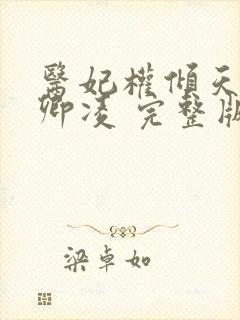 醫妃權傾天
卿凌 完整版
梁卓如